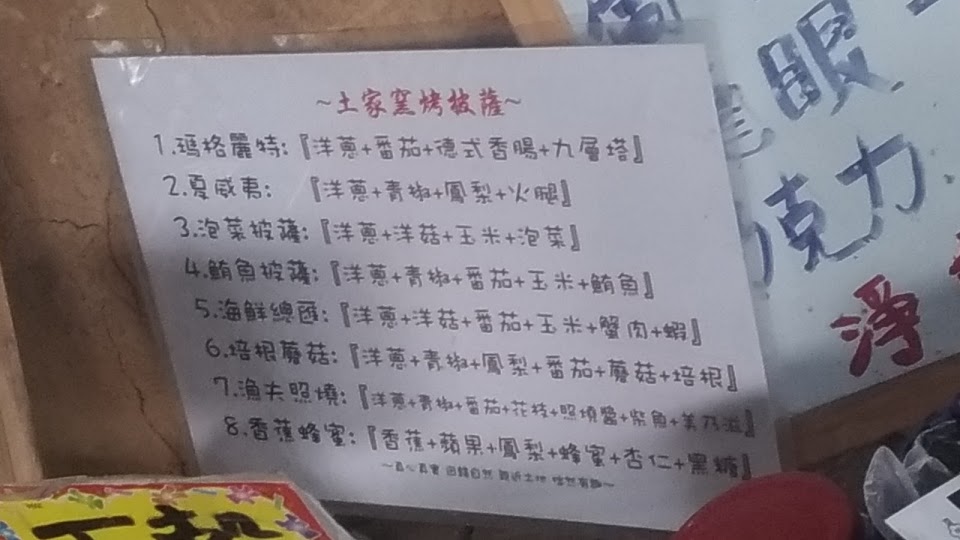 ~土家窯烤披薩~
1.瑪格麗特:『洋蔥+番茄+德式香腸+九層塔』
2.夏威夷:『洋蔥+青椒+鳳梨+火腿』
3.泡菜披薩:『洋蔥+洋菇+玉米+泡菜』
4.鮪魚披薩:『洋蔥+青椒+番茄+玉米+鮪魚』
5.海鮮總匯:『洋蔥+洋菇+番茄+玉米+蟹肉+蝦』
6.培根蘑菇:『洋蔥+青椒+鳳梨+番茄+蘑菇+培根』
7.漁夫照燒:『洋蔥+青椒+番茄+花枝+照燒醬+柴魚+美乃滋』
8.香蕉蜂蜜:『香蕉+蘋果+鳳梨+蜂蜜+杏仁+黑糖』
~真心真實 回歸自然 親近土地
眼
克力
淨